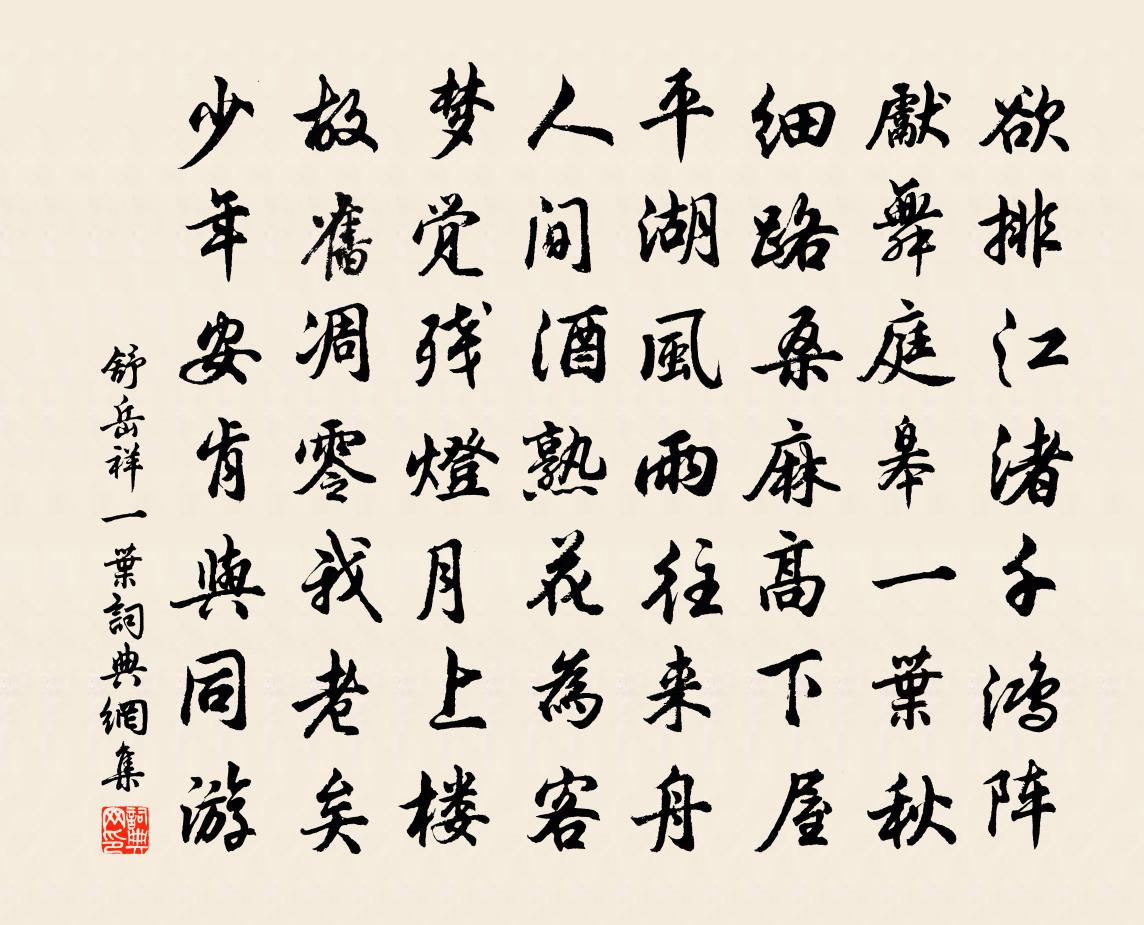 欲排江渚千鸿阵
獻舞庭皋一葉秋
细路桑麻高下屋
平湖風雨往来舟
人间酒熟花為客
梦觉残燈月上楼
故舊凋零我老矣
少年安肯與同游
舒岳祥一葉詞典網集
詞典
网印